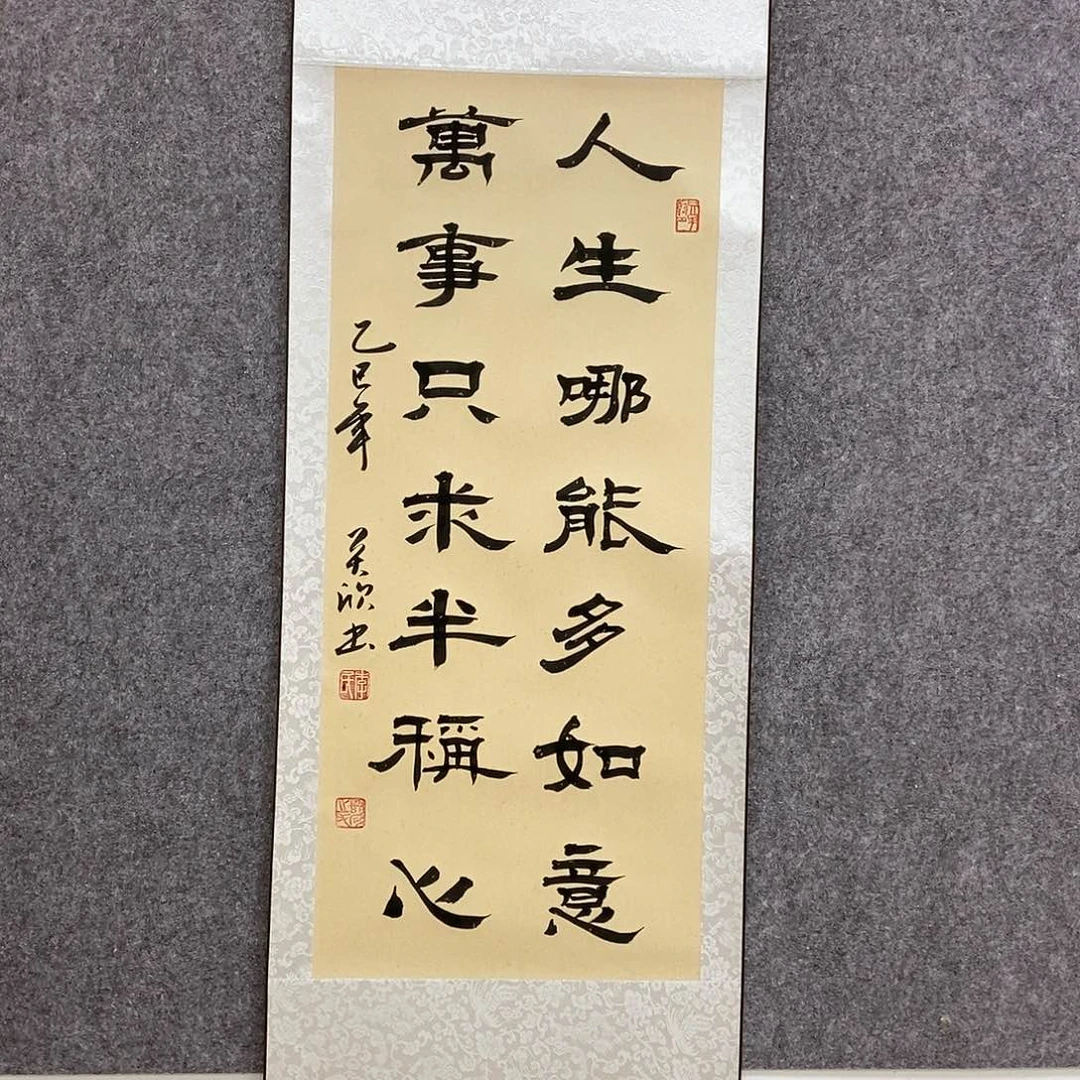 人生哪能多如意
萬事只求半稱心
乙巳年
欣书